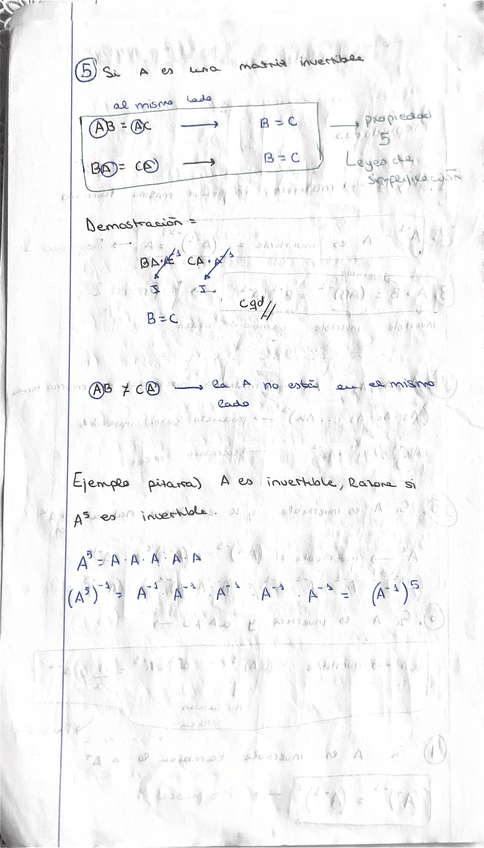 ⑤ Si A es una matriz invertible
al mismo lado
AB = AC → B = C → propiedad 5
BA = CA → B = C Leyes de simplificación
Demostración =
BA·A⁻¹ = CA·A⁻¹
I I
B = C cqd//
AB ≠ CA → la A no están en el mismo
lado
Ejemplo pizarra) A es invertible, Razona si
A⁵ es invertible.
A⁵ = A·A·A·A·A
(A⁵)⁻¹ = A⁻¹ · A⁻¹ · A⁻¹ · A⁻¹ · A⁻¹ = (A⁻¹)⁵